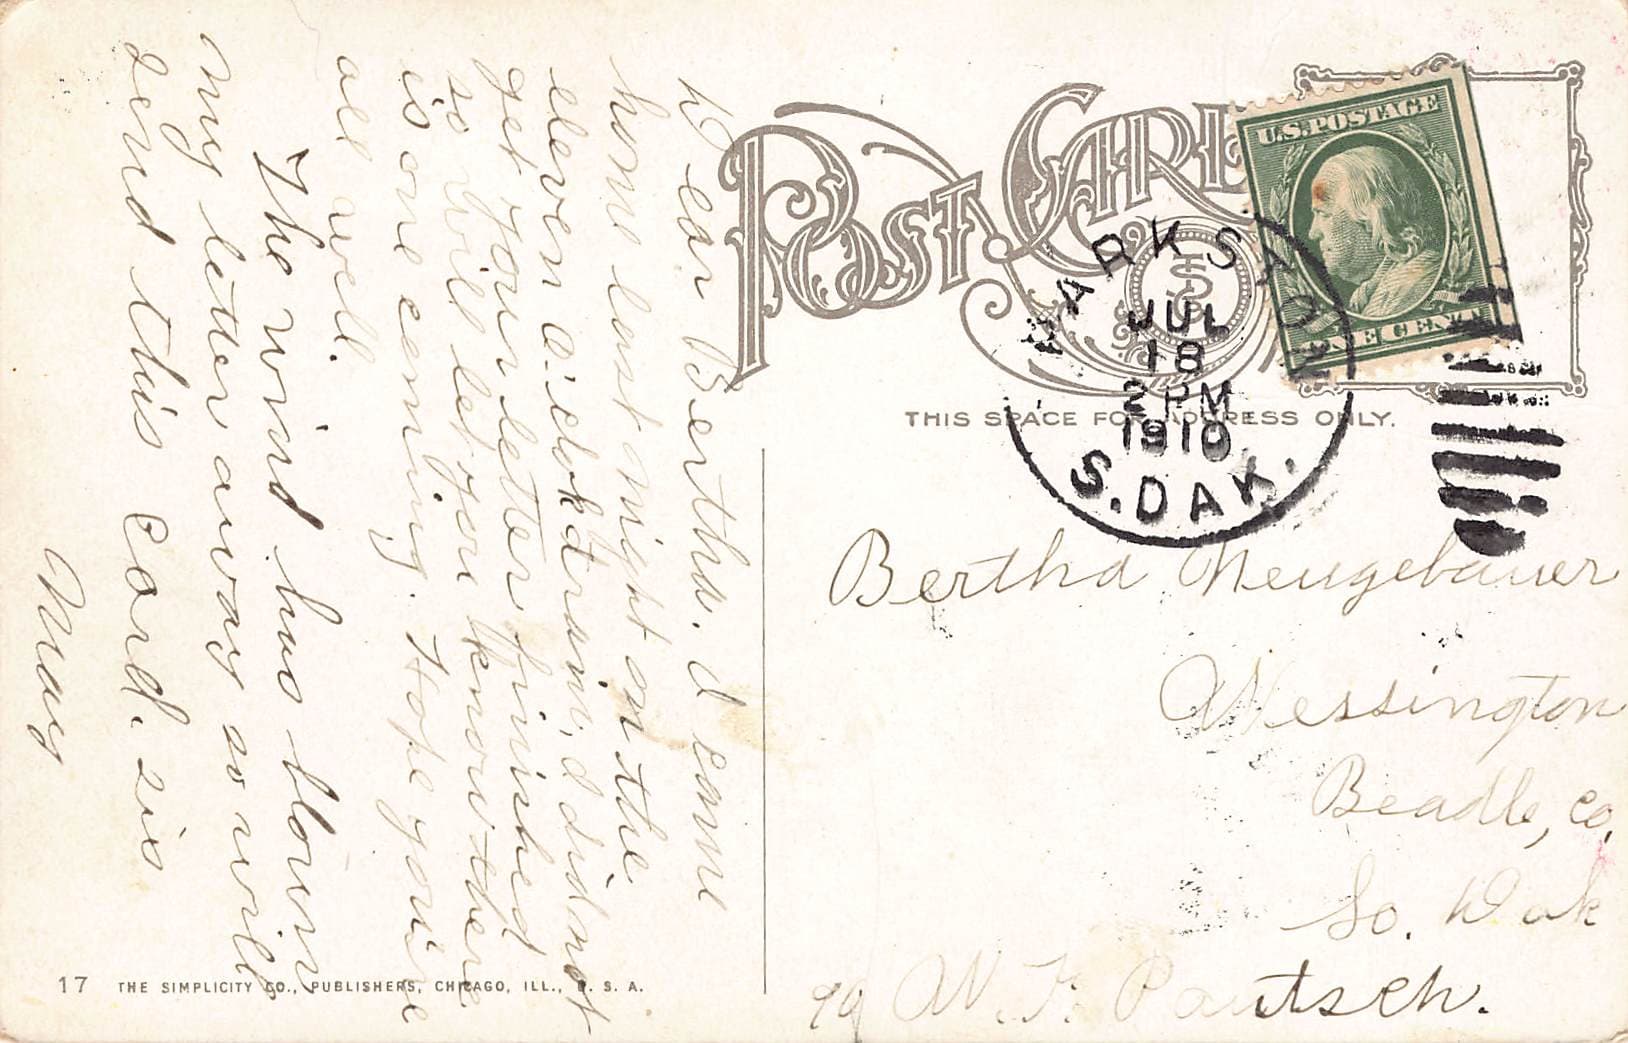 POST CARD
U.S. POSTAGE
ONE CENT
PARKSTON
JUL
18
2 PM
1910
S. DAK.
THIS SPACE FOR ADDRESS ONLY.
Dear Bertha. I came
home last night on the
eleven o'clock train, I did not
get your letter finished
so will let you know there
is one coming. Hope you're
all well.
The wind has blown
my letter away so will
send this card. sis
May
Bertha Neugebauer
Wessington
Beadle, Co.
So. Dak
W. F. Pautsch.
17 THE SIMPLICITY CO., PUBLISHERS, CHICAGO, ILL., U. S. A.